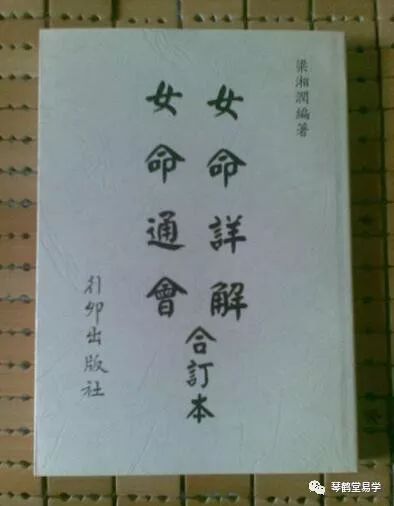 梁湘潤編著
女命詳解
女命通會
合訂本
行卯出版社
琴鹤堂易学